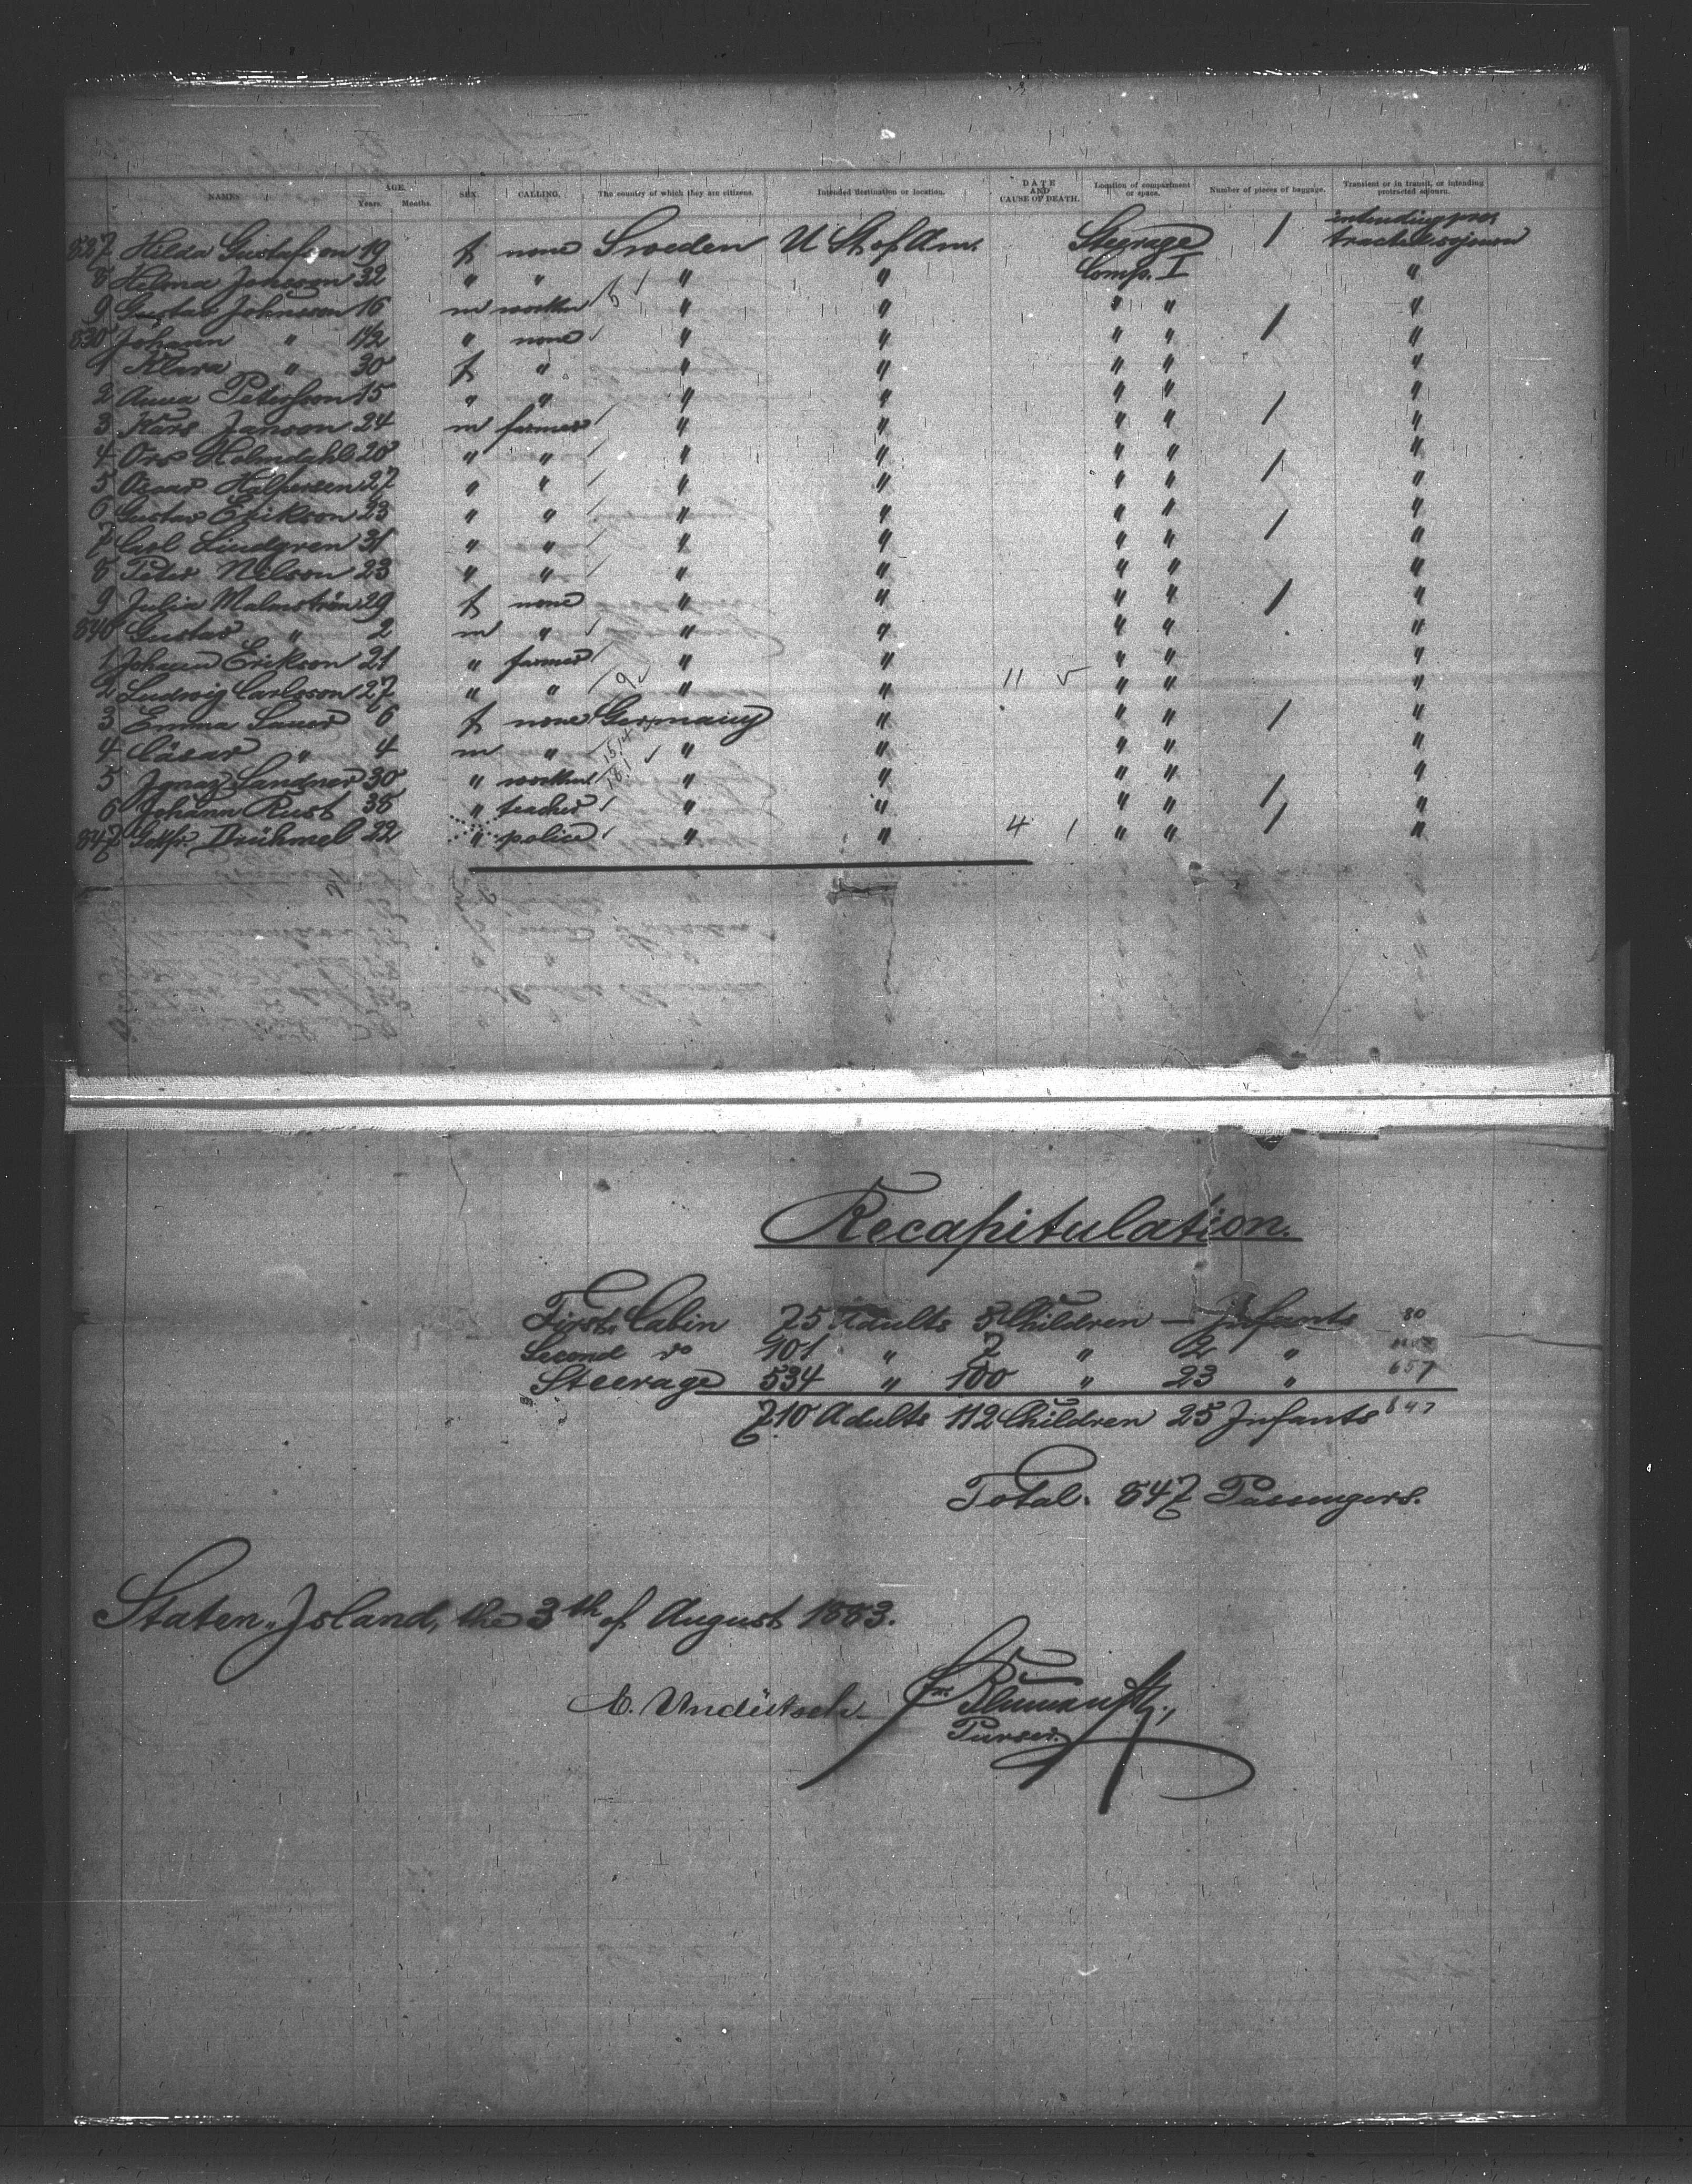 NAMES AGE. Years. Months. SEX. CALLING. The country of which they are citizens. Intended destination or location. DATE AND CAUSE OF DEATH. Location of compartment or space. Number of pieces of baggage. Transient or in transit, or intending protracted sojourn.
827 Hilda Gustafsson 19 f none Sweden U St. of Am. Steerage / intending protracted sojourn
8 Helma Johnson 32 " " " " Comp. I "
9 Gustav Johnson 16 m worker " " " " "
830 Johann " 1 1/2 " none " " " " / "
1 Klara " 30 f " " " " " "
2 Anna Petersson 15 " " " " " " "
3 Kars Janson 24 m farmer " " " " / "
4 Ors Holmdahl 20 " " " " " " "
5 Oscar 27 " " " " " " / "
6 Gustav Erikson 23 " " " " " " "
7 Carl Lindgren 31 " " " " " " / "
8 Peter Nilson 23 " " " " " " "
9 Julia Malmström 29 f none " " " " / "
840 Gustav " 2 m " " " " " "
1 Johann Erikson 21 " farmer " " " " "
2 Ludwig Carlsson 27 " " 9 " " 11 " " "
3 Emma Sauer 6 f none Germany " " " / "
4 Cäsar " 4 m " " " " " "
5 Ignaz Landner 30 " worker " " " " "
6 Johann Rust 35 " teacher " " " " / "
847 Gottfr. Drühmel 22 " police " " 4 1 " " / "
Recapitulation.
First Cabin 75 Adults 5 Children — Infants 80
Second do 101 " 7 " 2 "
Steerage 534 " 100 " 23 " 657
710 Adults 112 Children 25 Infants 847
Total: 847 Passengers.
Staten-Island, the 3th of August 1883.
E. Undütsch.
Purser.